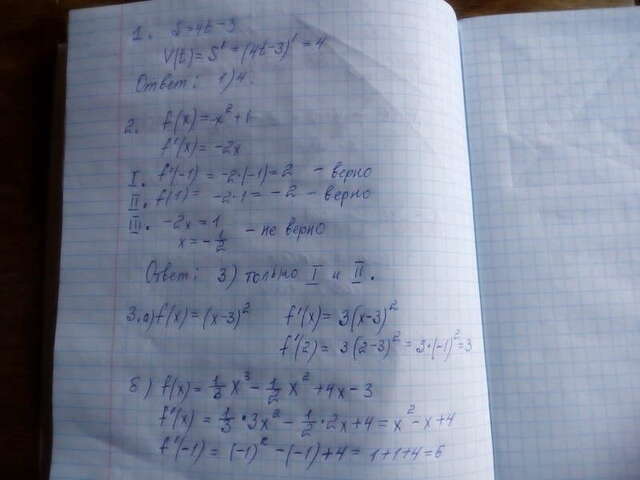 1. S=4t-3
V(t)=S'=(4t-3)'=4
Ответ: 1)4.
2. f(x)=-x²+1
f'(x)=-2x
I. f'(-1)=-2·(-1)=2 - верно
II. f'(1)=-2·1=-2 - верно
III. -2x=1
x=-1/2 - не верно
Ответ: 3) только I и II.
3. а) f(x)=(x-3)² f'(x)=3(x-3)²
f'(2)=3(2-3)²=3·(-1)²=3
б) f(x)=1/3x³-1/2x²+4x-3
f'(x)=1/3·3x²-1/2·2x+4=x²-x+4
f'(-1)=(-1)²-(-1)+4=1+1+4=6